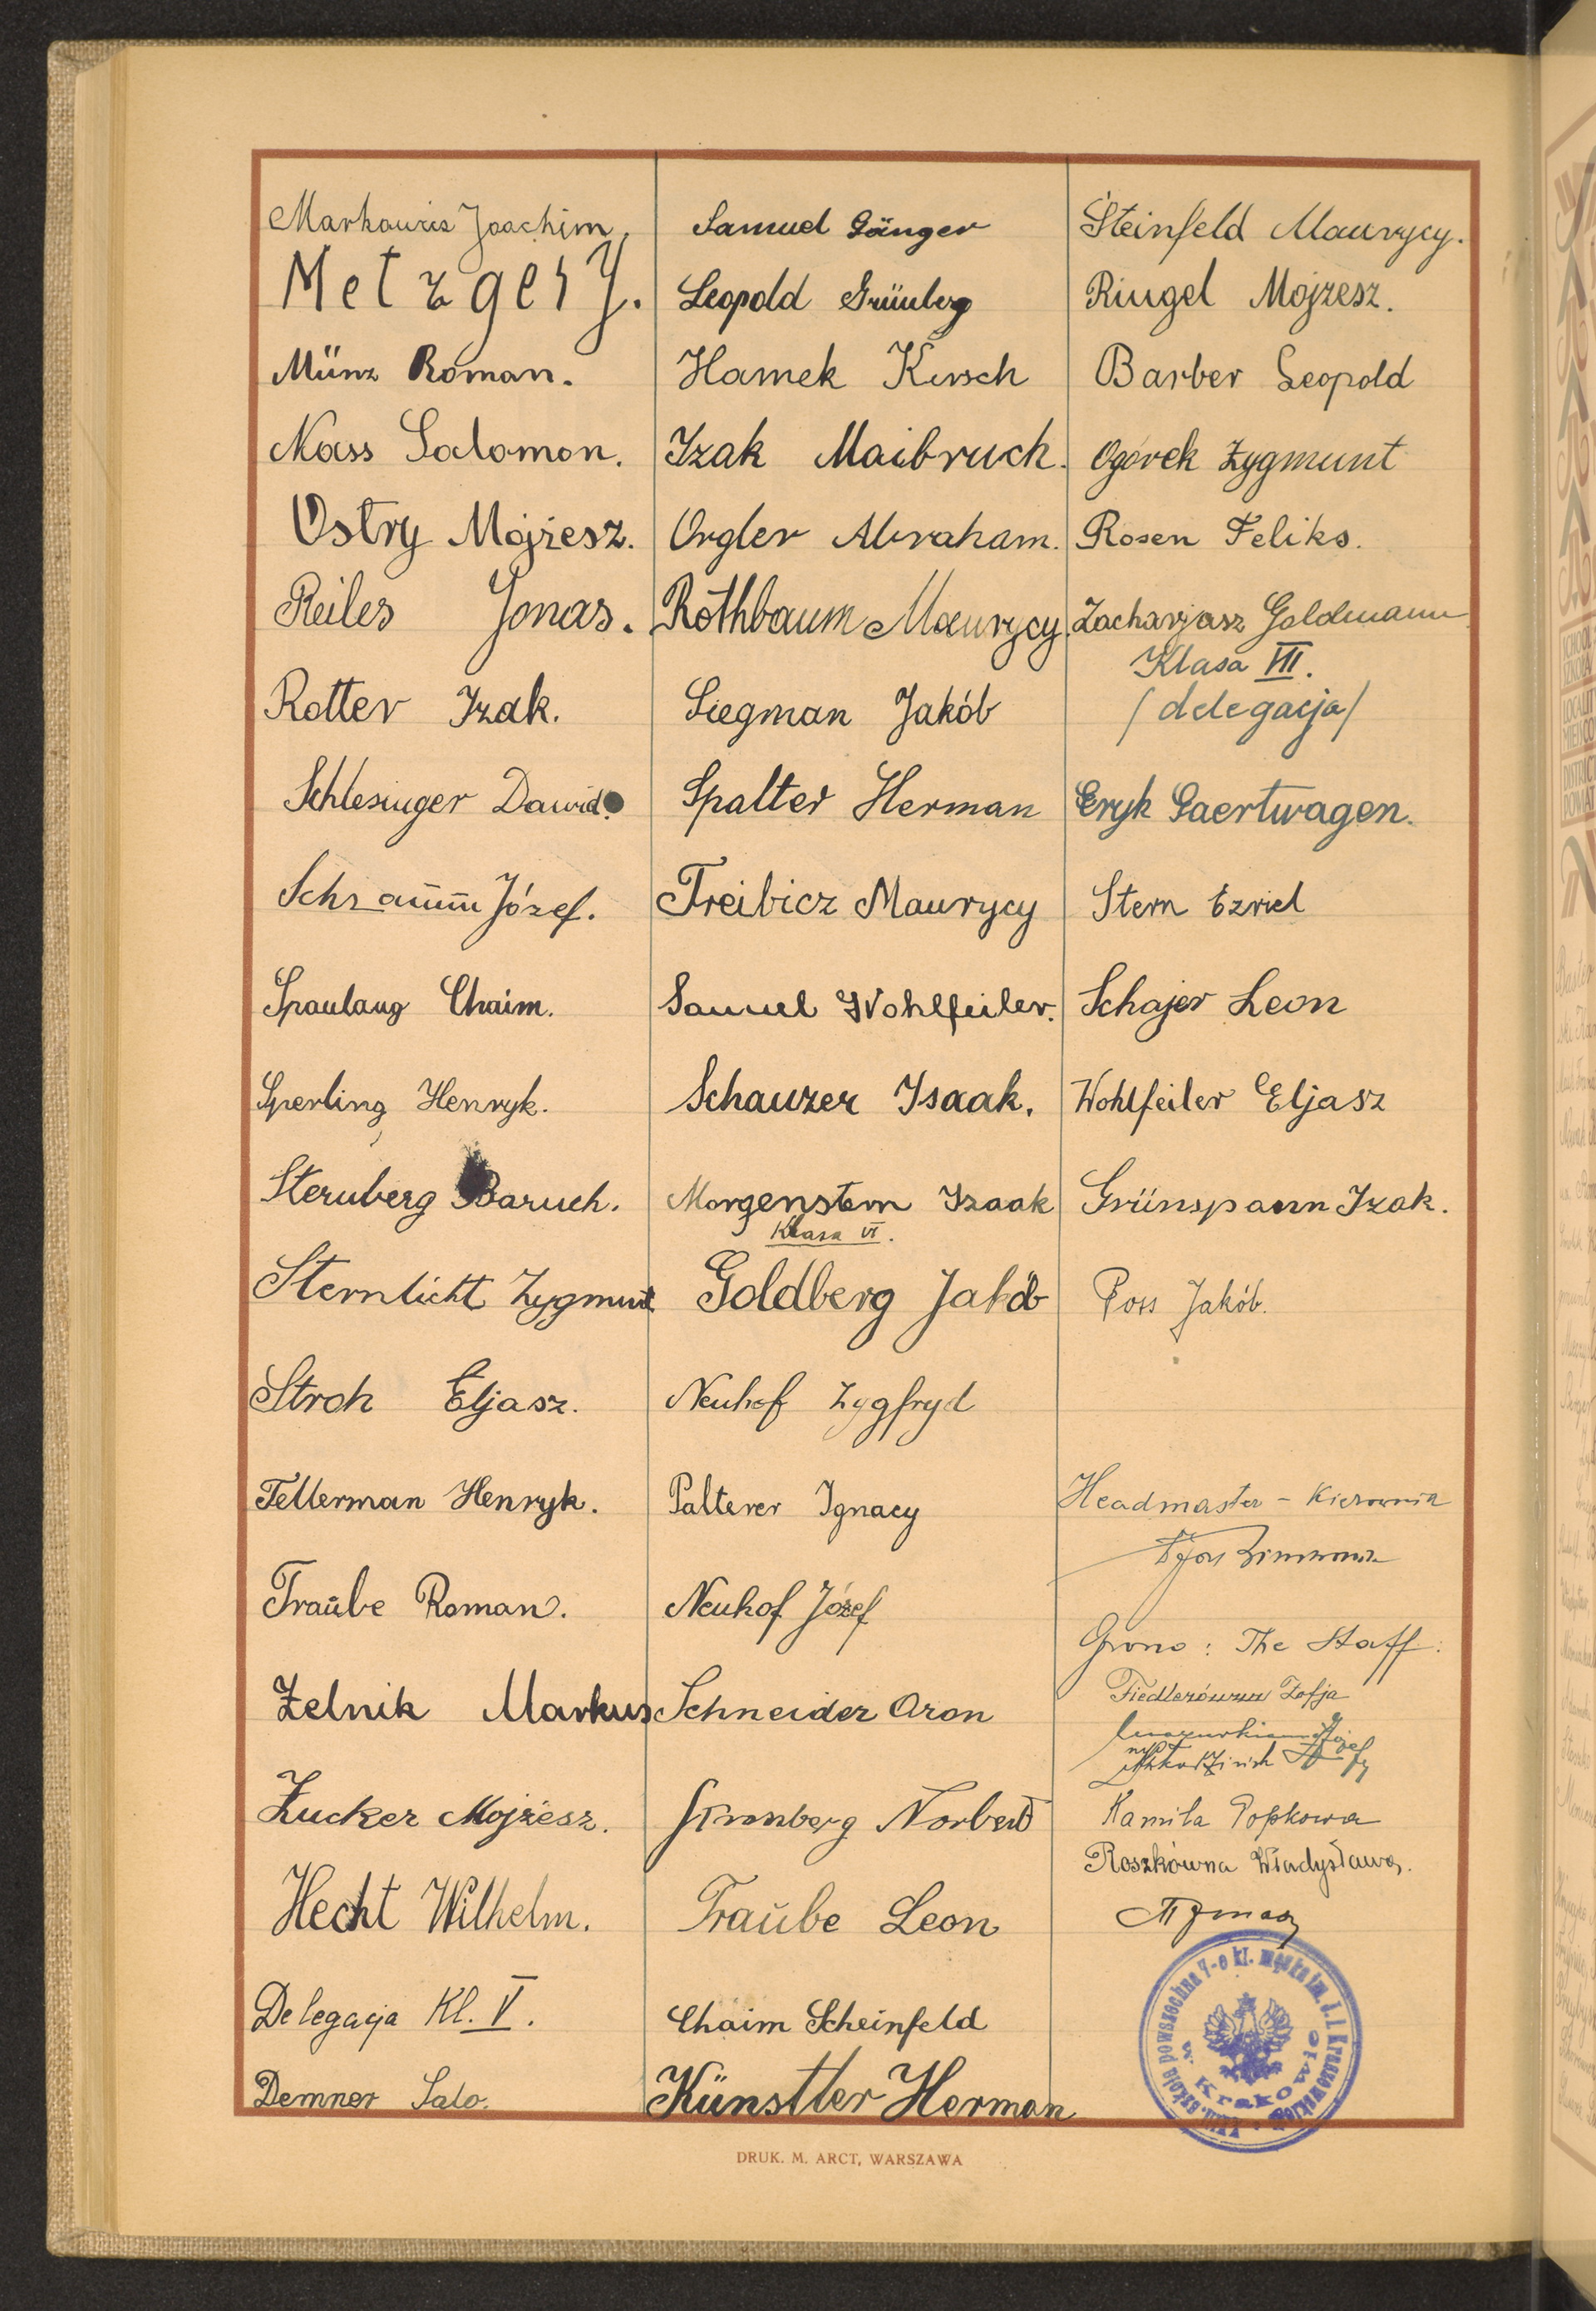 Markowicz Joachim.
Metzger J.
Münz Roman.
Nass Salomon.
Ostry Mojżesz.
Reiles Jonas.
Rotter Izak.
Schlesinger Dawid.
Schramm Józef.
Spanlang Chaim.
Sperling Henryk.
Sternberg Baruch.
Sternlicht Zygmunt
Stroh Eljasz.
Tellerman Henryk.
Traŭbe Roman.
Zelnik Markus
Zucker Mojżesz.
Hecht Wilhelm.
Delegacja Kl. V.
Demner Salo.
Samuel Gänger
Leopold Grünberg
Hamek Kirsch
Izak Maibruch.
Orgler Abraham.
Rothbaum Maurycy.
Siegman Jakób
Spalter Herman
Treibicz Maurycy
Samuel Wohlfeiler.
Schauzer Isaak.
Morgenstern Izaak
Klasa VI.
Goldberg Jakób
Neuhof Zygfryd
Palterer Ignacy
Neuhof Józef
Schneider Aron
Stromberg Norbert
Traŭbe Leon
Chaim Scheinfeld
Künstler Herman
Steinfeld Maurycy.
Ringel Mojżesz.
Barber Leopold
Ogórek Zygmunt
Rosen Feliks.
Zacharjasz Goldmann
Klasa VII.
/delegacja/
Eryk Gaertwagen.
Stern Ezriel
Schajer Leon
Wohlfeiler Eljasz
Grünspann Izak.
Poss Jakób.
Headmaster - Kierownik
Grono: The Staff:
Fiedlerówna Zofja
Józef
Kamila Popkowa
Roszkówna Władysława.
szkoła powszechna 7-o kl. męska im. J. I. Kraszewskiego
w Krakowie
DRUK. M. ARCT, WARSZAWA